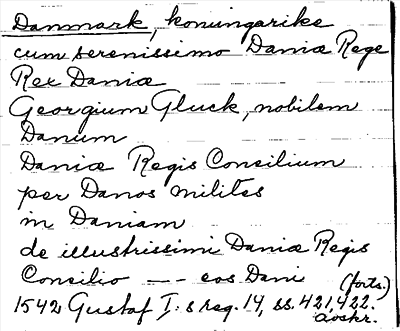 Danmark, konungarike
cum serenissimo Daniæ Rege
Rex Daniæ
Georgium Gluck, nobilem
Danum
Daniæ Regis Consilium
per Danos milites
in Daniam
de illustrissimi Daniæ Regis
Consilio -- eos Dani (forts.)
1542 Gustaf I:s reg. 14, ss. 421, 422.
avskr.